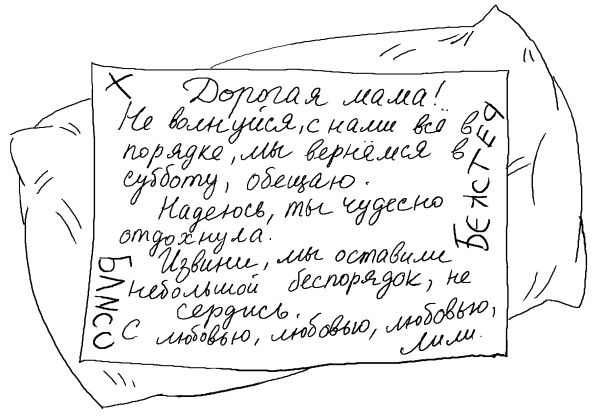 Х
Дорогая мама!
Не волнуйся, с нами всё в
порядке, мы вернёмся в
субботу, обещаю.
Надеюсь, ты чудесно
отдохнула.
Извини, мы оставили
небольшой беспорядок, не
сердись.
С любовью, любовью, любовью,
Лили.
БЛNСО
БЕЖСТЕЯ